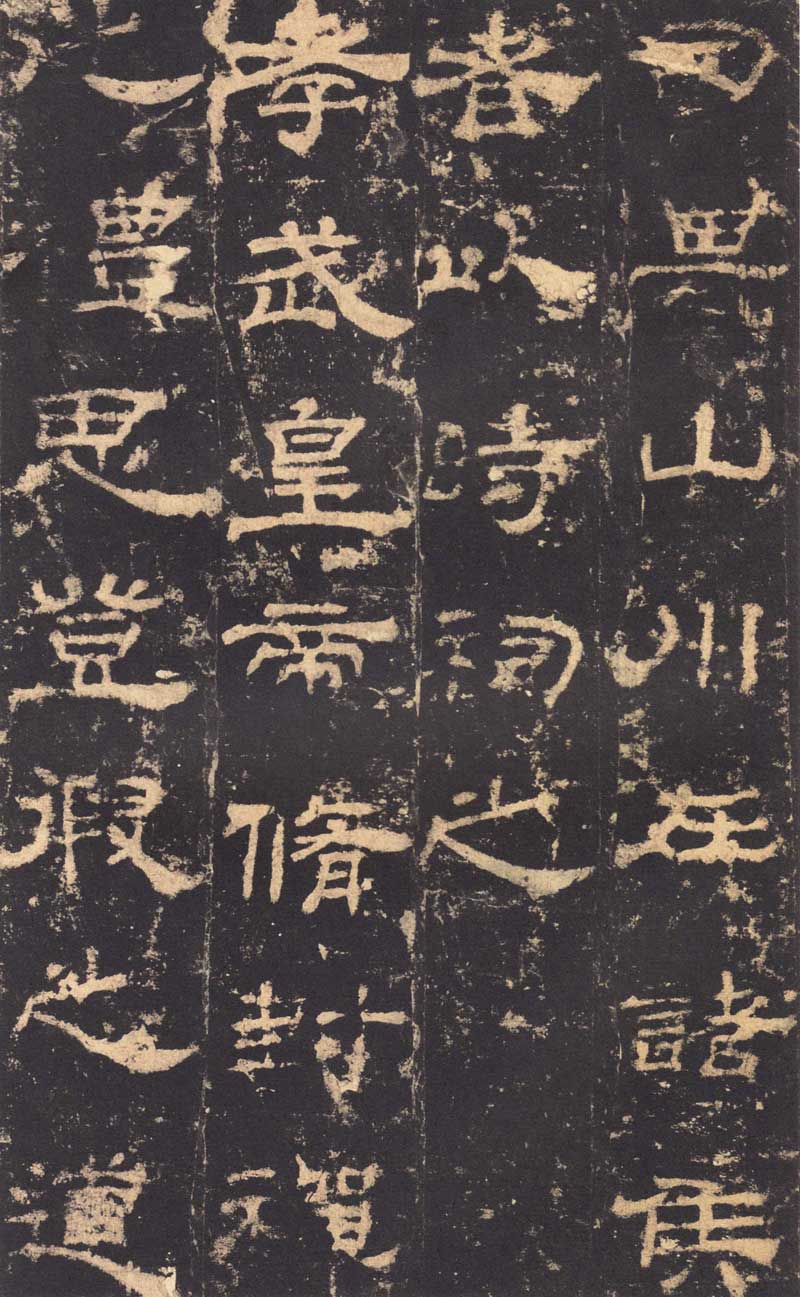 司其山川在諸侯
者以時祠之
孝武皇帝脩封禪
之禮思登徦之道